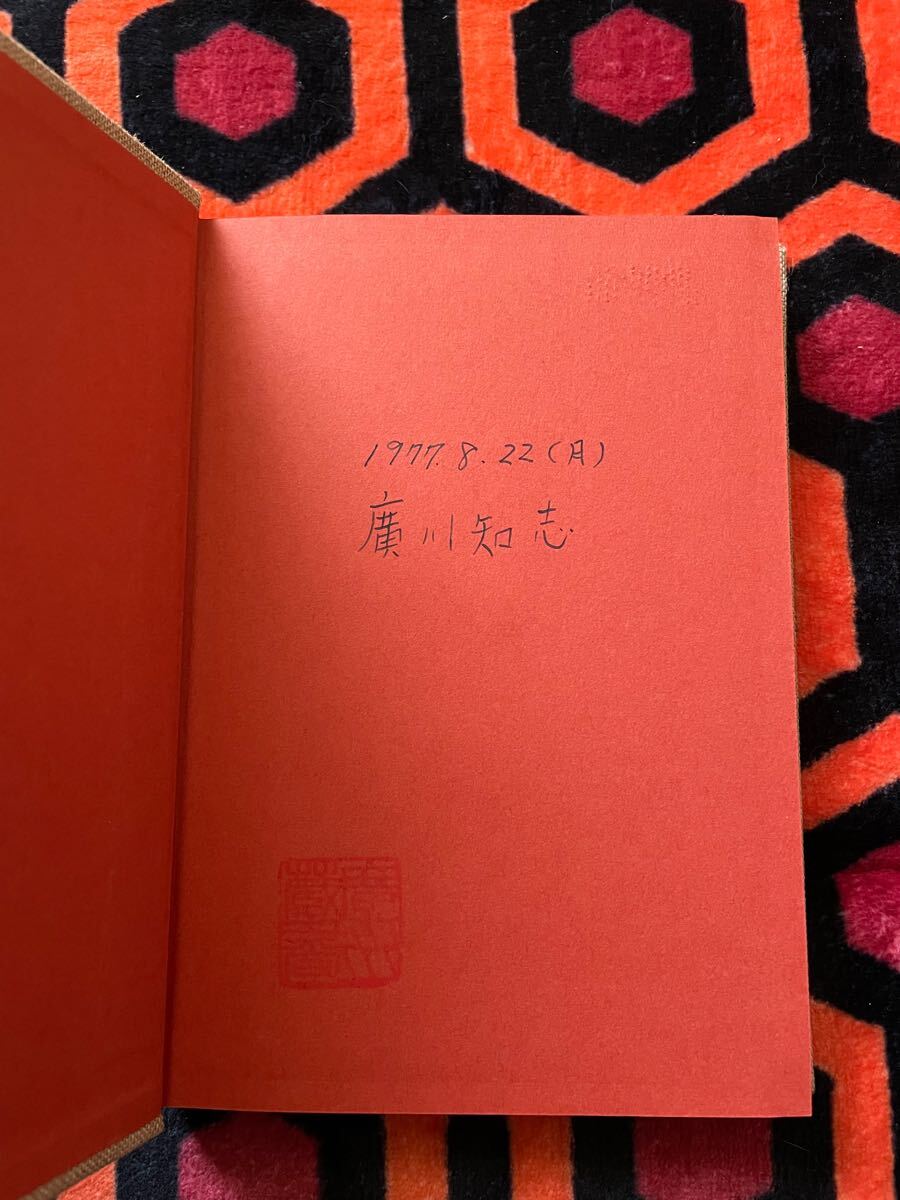 1977.8.22(月)
廣川知志